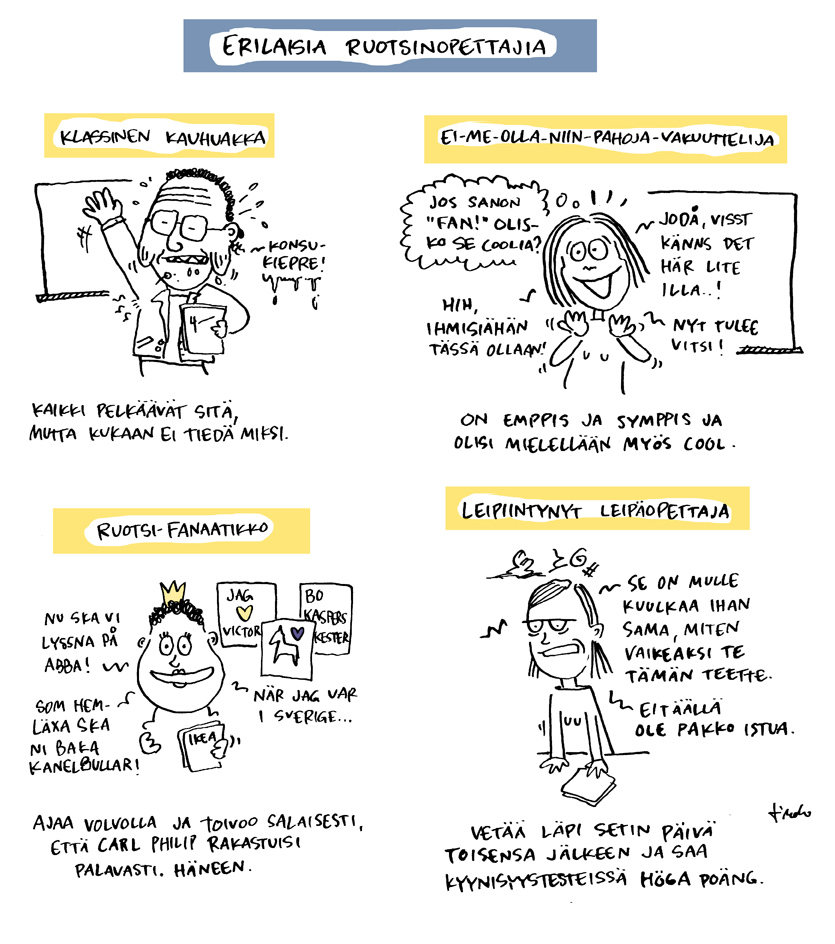 ERILAISIA RUOTSINOPETTAJIA
KLASSINEN KAUHUAKKA
KONSU-
KIEPRE!
4/-
KAIKKI PELKÄÄVÄT SITÄ,
MUTTA KUKAAN EI TIEDÄ MIKSI.
EI-ME-OLLA-NIIN-PAHOJA-VAKUUTTELIJA
JOS SANON
"FAN!" OLIS-
KO SE COOLIA?
JODÅ, VISST
KÄNNS DET
HÄR LITE
ILLA..!
HIH,
IHMISIÄHÄN
TÄSSÄ OLLAAN!
NYT TULEE
VITSI!
ON EMPPIS JA SYMPPIS JA
OLISI MIELELLÄÄN MYÖS COOL.
RUOTSI-FANAATIKKO
JAG
VICTOR
BO
KASPERS
KESTER
NU SKA VI
LYSSNA PÅ
ABBA!
SOM HEM-
LÄXA SKA
NI BAKA
KANELBULLAR!
NÄR JAG VAR
I SVERIGE...
IKEA
AJAA VOLVOLLA JA TOIVOO SALAISESTI,
ETTÄ CARL PHILIP RAKASTUISI
PALAVASTI. HÄNEEN.
LEIPIINTYNYT LEIPÄOPETTAJA
SE ON MULLE
KUULKAA IHAN
SAMA, MITEN
VAIKEAKSI TE
TÄMÄN TEETTE.
EI TÄÄLLÄ
OLE PAKKO ISTUA.
VETÄÄ LÄPI SETIN PÄIVÄ
TOISENSA JÄLKEEN JA SAA
KYYNISYYSTESTEISSÄ HÖGA POÄNG.